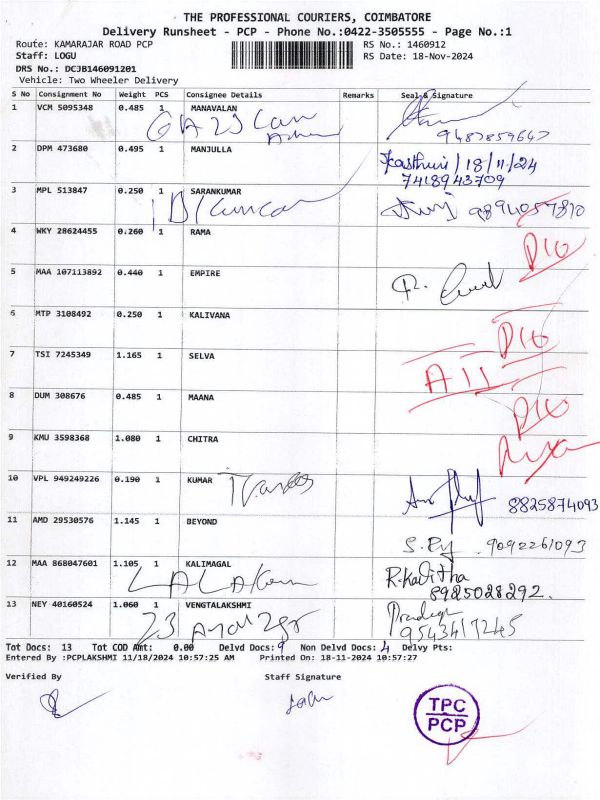 THE PROFESSIONAL COURIERS, COIMBATORE
Delivery Runsheet - PCP - Phone No.:0422-3505555 - Page No.:1
Route: KAMARAJAR ROAD PCP RS No.: 1460912
Staff: LOGU RS Date: 18-Nov-2024
DRS No.: DCJB146091201
Vehicle: Two Wheeler Delivery
S No Consignment No Weight PCS Consignee Details Remarks Seal & Signature
1 VCM 5095348 0.485 1 MANAVALAN
9487859647
2 DPM 473680 0.495 1 MANJULLA Kasthuri/18/11/24
7418943709
3 MPL 513847 0.250 1 SARANKUMAR 9894057810
4 WKY 28624455 0.260 1 RAMA
5 MAA 107113892 0.440 1 EMPIRE
6 MTP 3108492 0.250 1 KALIVANA
7 TSI 7245349 1.165 1 SELVA
8 DUM 308676 0.485 1 MAANA
9 KMU 3598368 1.080 1 CHITRA
10 VPL 949249226 0.190 1 KUMAR 8825874093
11 AMD 29530576 1.145 1 BEYOND
9092261093
12 MAA 868047601 1.105 1 KALIMAGAL R.Kavitha
8925028292.
13 NEY 40160524 1.060 1 VENGTALAKSHMI
23 9543417245
Tot Docs: 13 Tot COD Amt: 0.00 Delvd Docs: 9 Non Delvd Docs: 4 Delvy Pts:
Entered By :PCPLAKSHMI 11/18/2024 10:57:25 AM Printed On: 18-11-2024 10:57:27
Verified By Staff Signature
TPC
PCP